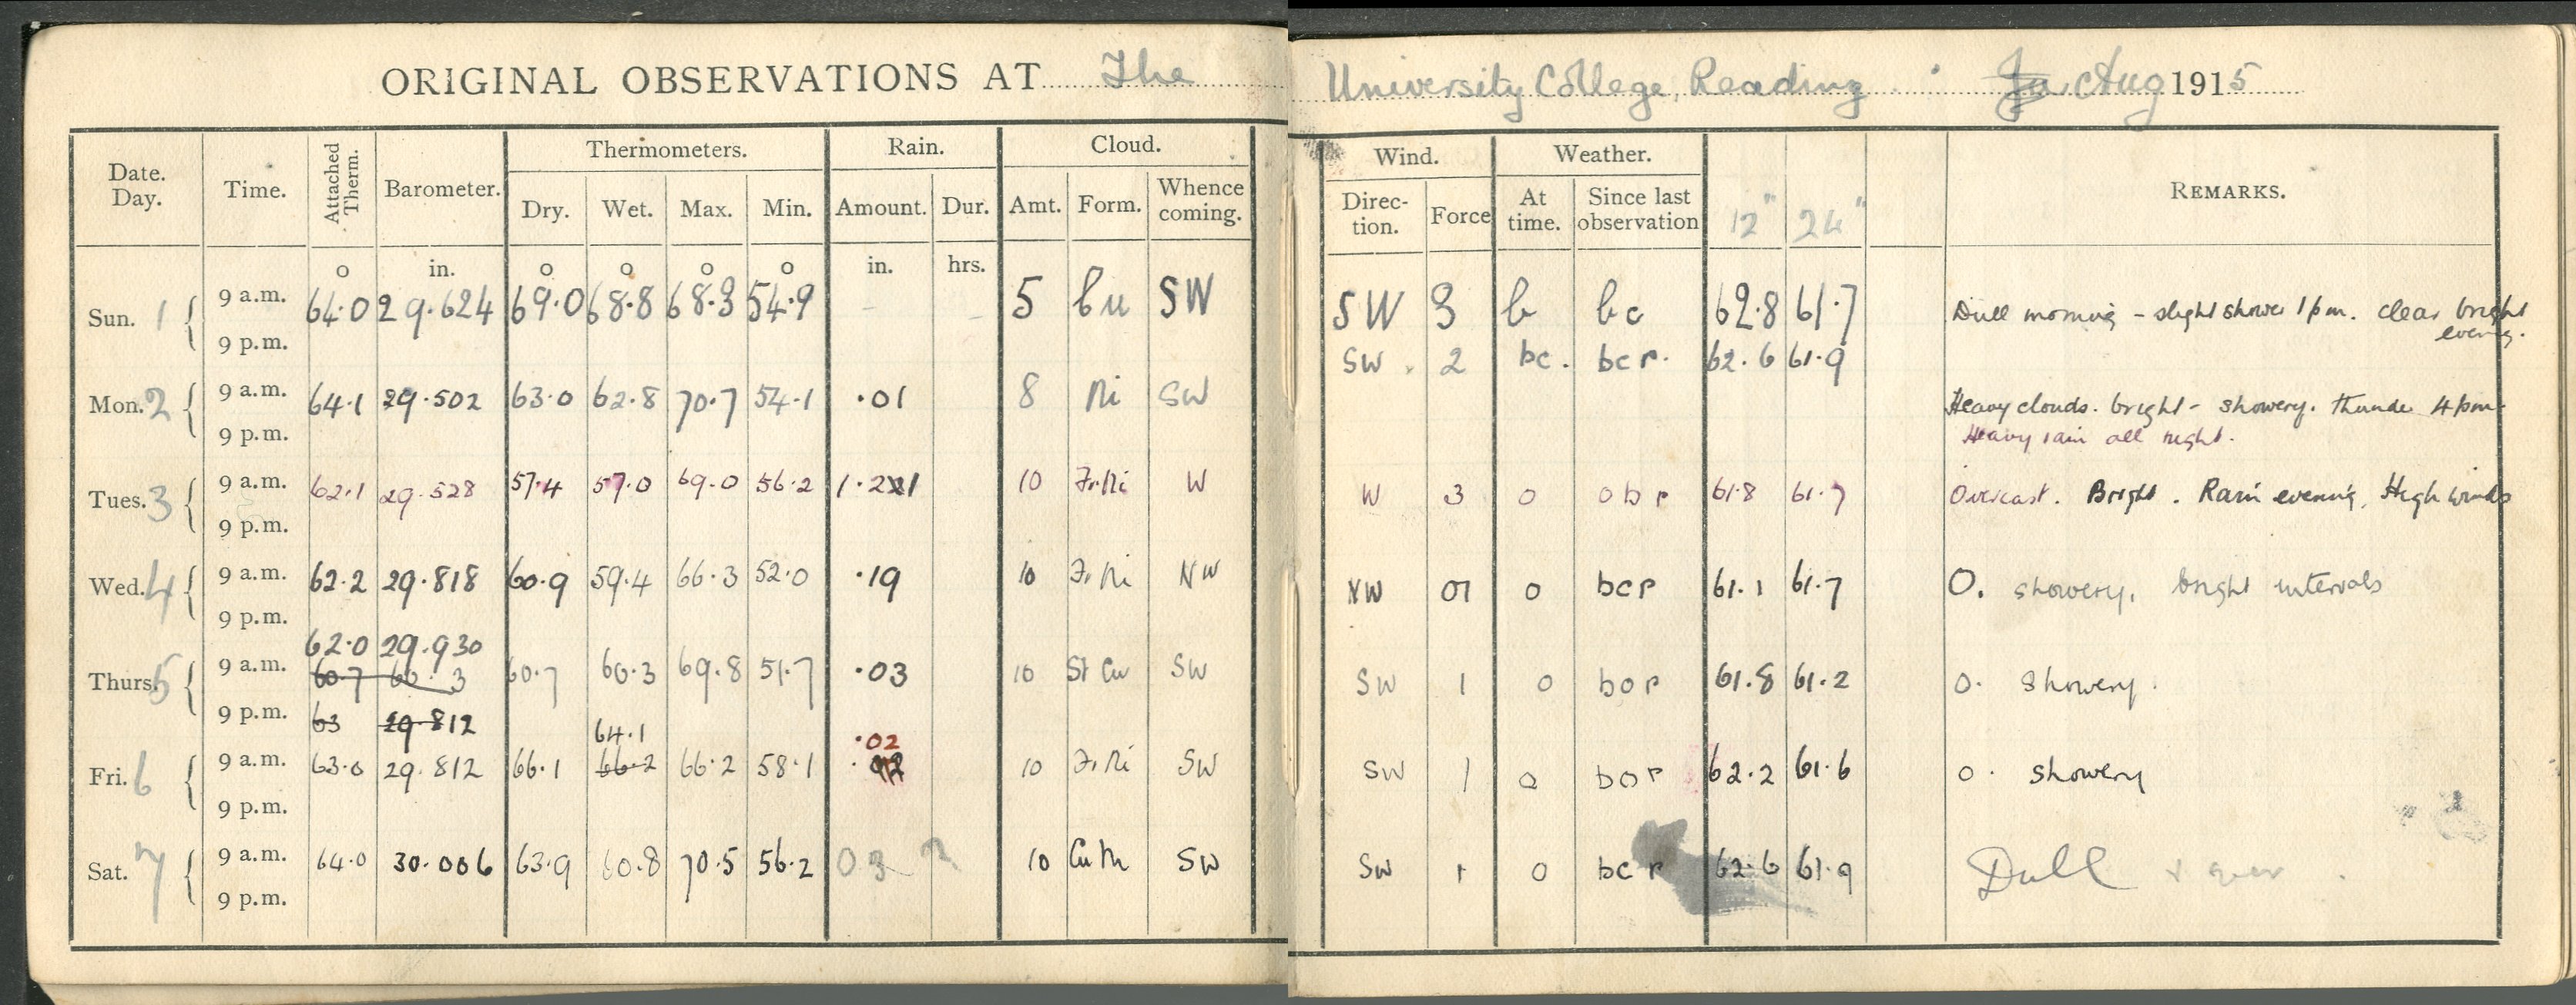 ORIGINAL OBSERVATIONS AT The University College, Reading Aug 1915
Date. Day. Time. Attached Therm. Barometer. Thermometers. Rain. Cloud. Wind. Weather. REMARKS.
Dry. Wet. Max. Min. Amount. Dur. Amt. Form. Whence coming. Direc-tion. Force At time. Since last observation 12" 24"
o in. o o o o in. hrs.
Sun. 1 9 a.m. 64.0 29.624 69.0 68.8 68.3 54.9 - - 5 Cu SW SW 3 b bc 62.8 61.7 Dull morning - slight shower 1 pm. clear bright evening.
9 p.m.
SW. 2 bc. bcr. 62.6 61.9
Mon. 2 9 a.m. 64.1 29.502 63.0 62.8 70.7 54.1 .01 8 Ni SW Heavy clouds. bright - showery. thunder 4 pm.
9 p.m. Heavy rain all night.
Tues. 3 9 a.m. 62.1 29.528 57.4 57.0 69.0 56.2 1.221 10 Fr.Ni W W 3 o obr 61.8 61.7 Overcast. Bright. Rain evening. High winds
9 p.m.
Wed. 4 9 a.m. 62.2 29.818 60.9 59.4 66.3 52.0 .19 10 Fr.Ni NW NW 01 o bcr 61.1 61.7 O. showery, bright intervals
9 p.m.
62.0 29.930
Thurs. 5 9 a.m. 60.7 60.3 60.7 60.3 69.8 51.7 .03 10 St Cu SW SW 1 o bor 61.8 61.2 o. Showery.
9 p.m. 63 29.812
64.1 .02
Fri. 6 9 a.m. 63.0 29.812 66.1 66.2 66.2 58.1 10 Fr.Ni SW SW 1 o bor 62.2 61.6 o. showery
9 p.m.
Sat. 7 9 a.m. 64.0 30.006 63.9 60.8 70.5 56.2 03 10 Cu Ni SW SW 1 o bcr 62.6 61.9 Dull
9 p.m.